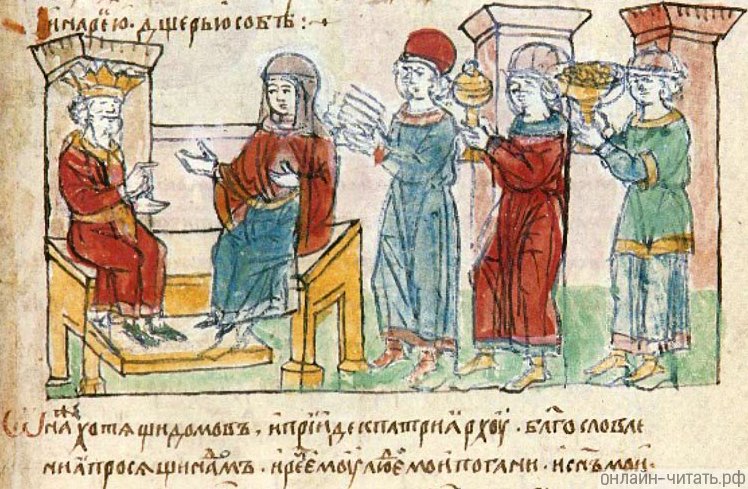 и нарею · дщерью собѣ :·
Ѡна же хотѧщи домовъ · и прїиде к патриархоу · блгословле
ниꙗ просѧщи на домъ · и рече емоу люⷣе мои погани · и сн҃ъ мои ·
онлайн-читать.рф